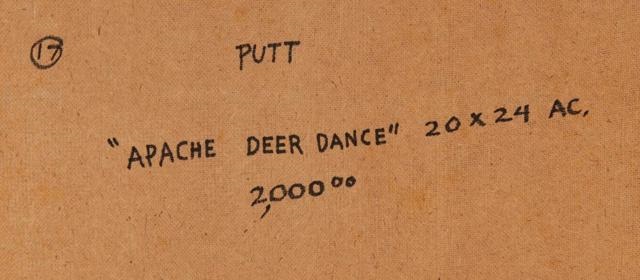 17 PUTT
"APACHE DEER DANCE" 20 X 24 AC.
2,000 00